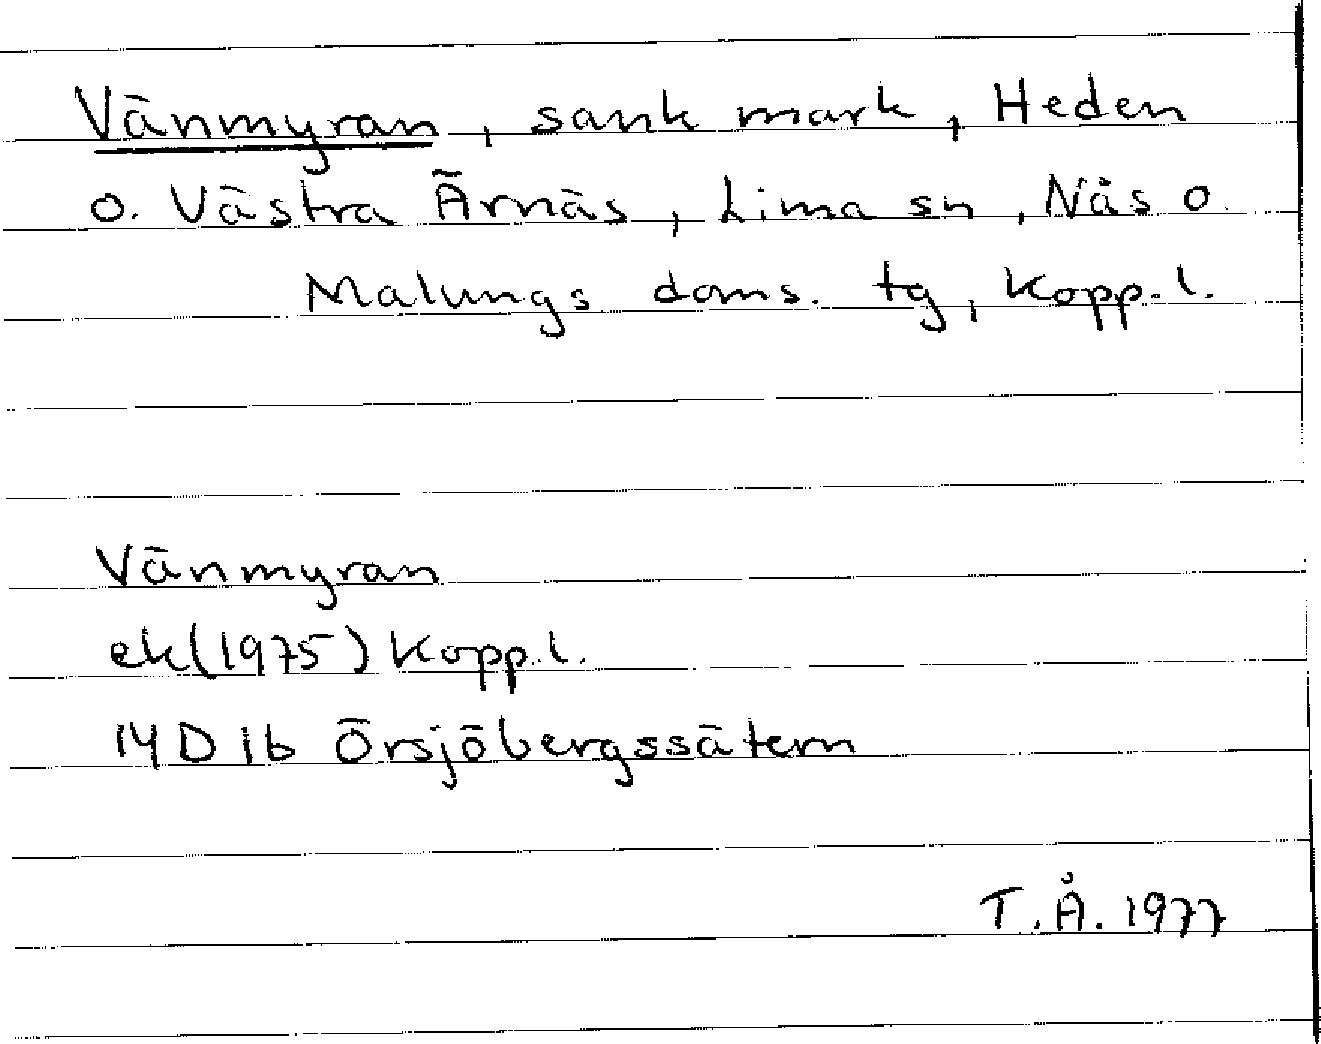 Vänmyran, sank mark, Heden
o. Västra Ärnäs, Lima sn, Nås o.
Malungs doms. tg, Kopp.l.
Vänmyran
ek(1975) Kopp.l.
14D1b Örsjöbergssätern
T.Å. 1977